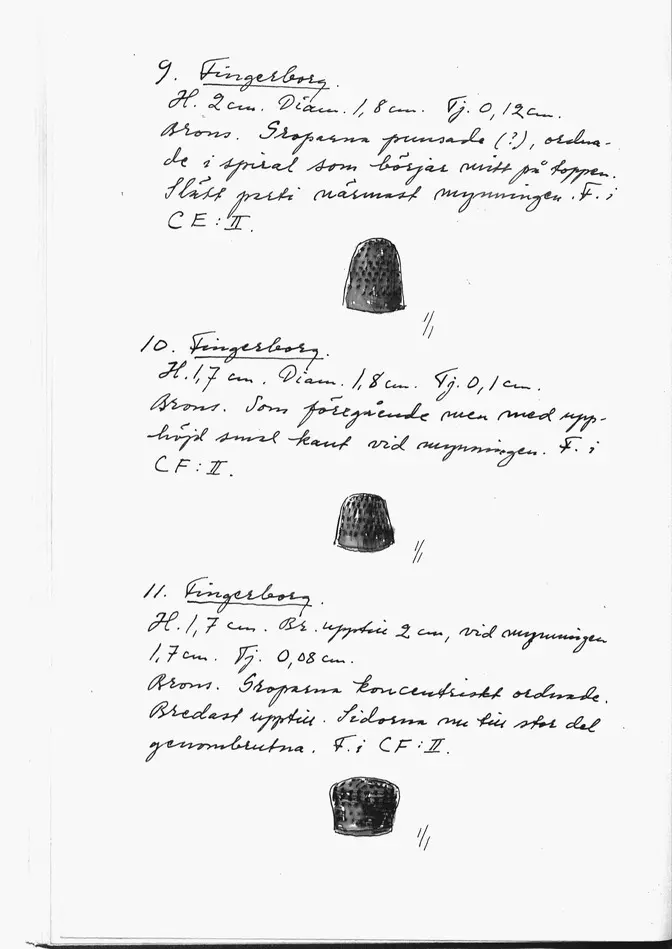 9. Fingerborg.
H. 2 cm. Diam. 1,8 cm. Tj. 0,12 cm.
Brons. Groparna punsade (?), ordna-
de i spiral som börjar mitt på toppen.
Slätt parti närmast mynningen. F. i
CE:II.
1/1
10. Fingerborg.
H. 1,7 cm. Diam. 1,8 cm. Tj. 0,1 cm.
Brons. Som föregående men med upp-
höjd smal kant vid mynningen. F. i
CF:II.
1/1
11. Fingerborg.
H. 1,7 cm. Br. upptill 2 cm, vid mynningen
1,7 cm. Tj. 0,08 cm.
Brons. Groparna koncentriskt ordnade.
Bredast upptill. Sidorna nu till stor del
genombrutna. F. i CF:II.
1/1